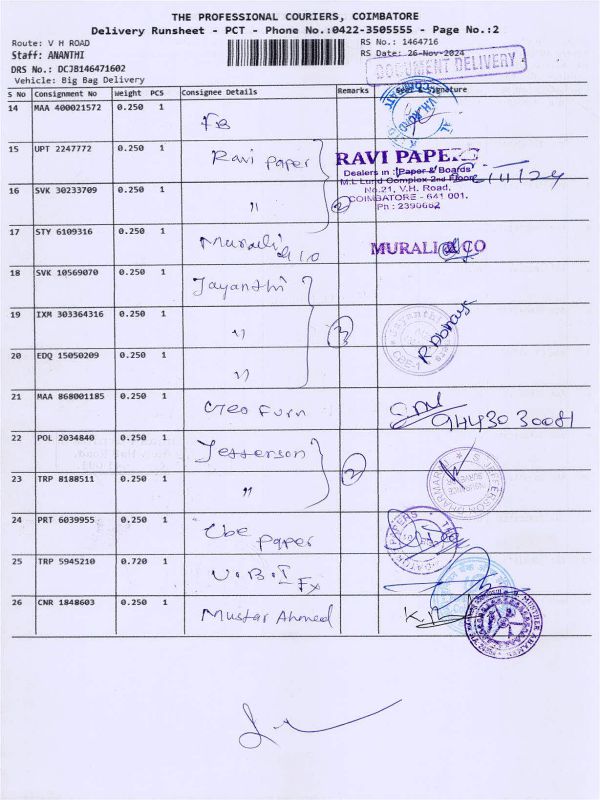 THE PROFESSIONAL COURIERS, COIMBATORE
Delivery Runsheet - PCT - Phone No.:0422-3505555 - Page No.:2
Route: V H ROAD
RS No.: 1464716
Staff: ANANTHI
RS Date: 26-Nov-2024
DOCUMENT DELIVERY
DRS No.: DCJB146471602
Vehicle: Big Bag Delivery
S No Consignment No Weight PCS Consignee Details Remarks Signature
14 MAA 400021572 0.250 1 FB
15 UPT 2247772 0.250 1 Ravi paper
RAVI PAPERS
Dealers in : Paper & Boards
M.L Lund Complex 2nd Floor
No.21, V.H. Road,
COIMBATORE - 641 001.
Ph : 2390662
16 SVK 30233709 0.250 1 " 2
17 STY 6109316 0.250 1 Murali & Co
MURALI & CO
18 SVK 10569070 0.250 1 Jayanthi
19 IXM 303364316 0.250 1 " 3
R. Abinaya
20 EDQ 15050209 0.250 1 "
21 MAA 868001185 0.250 1 Geo Furn
9443030081
22 POL 2034840 0.250 1 Jefferson 2
23 TRP 8188511 0.250 1 "
24 PRT 6039955 0.250 1 Ube paper
25 TRP 5945210 0.720 1 U.B.I Fx
26 CNR 1848603 0.250 1 Mustar Ahmed